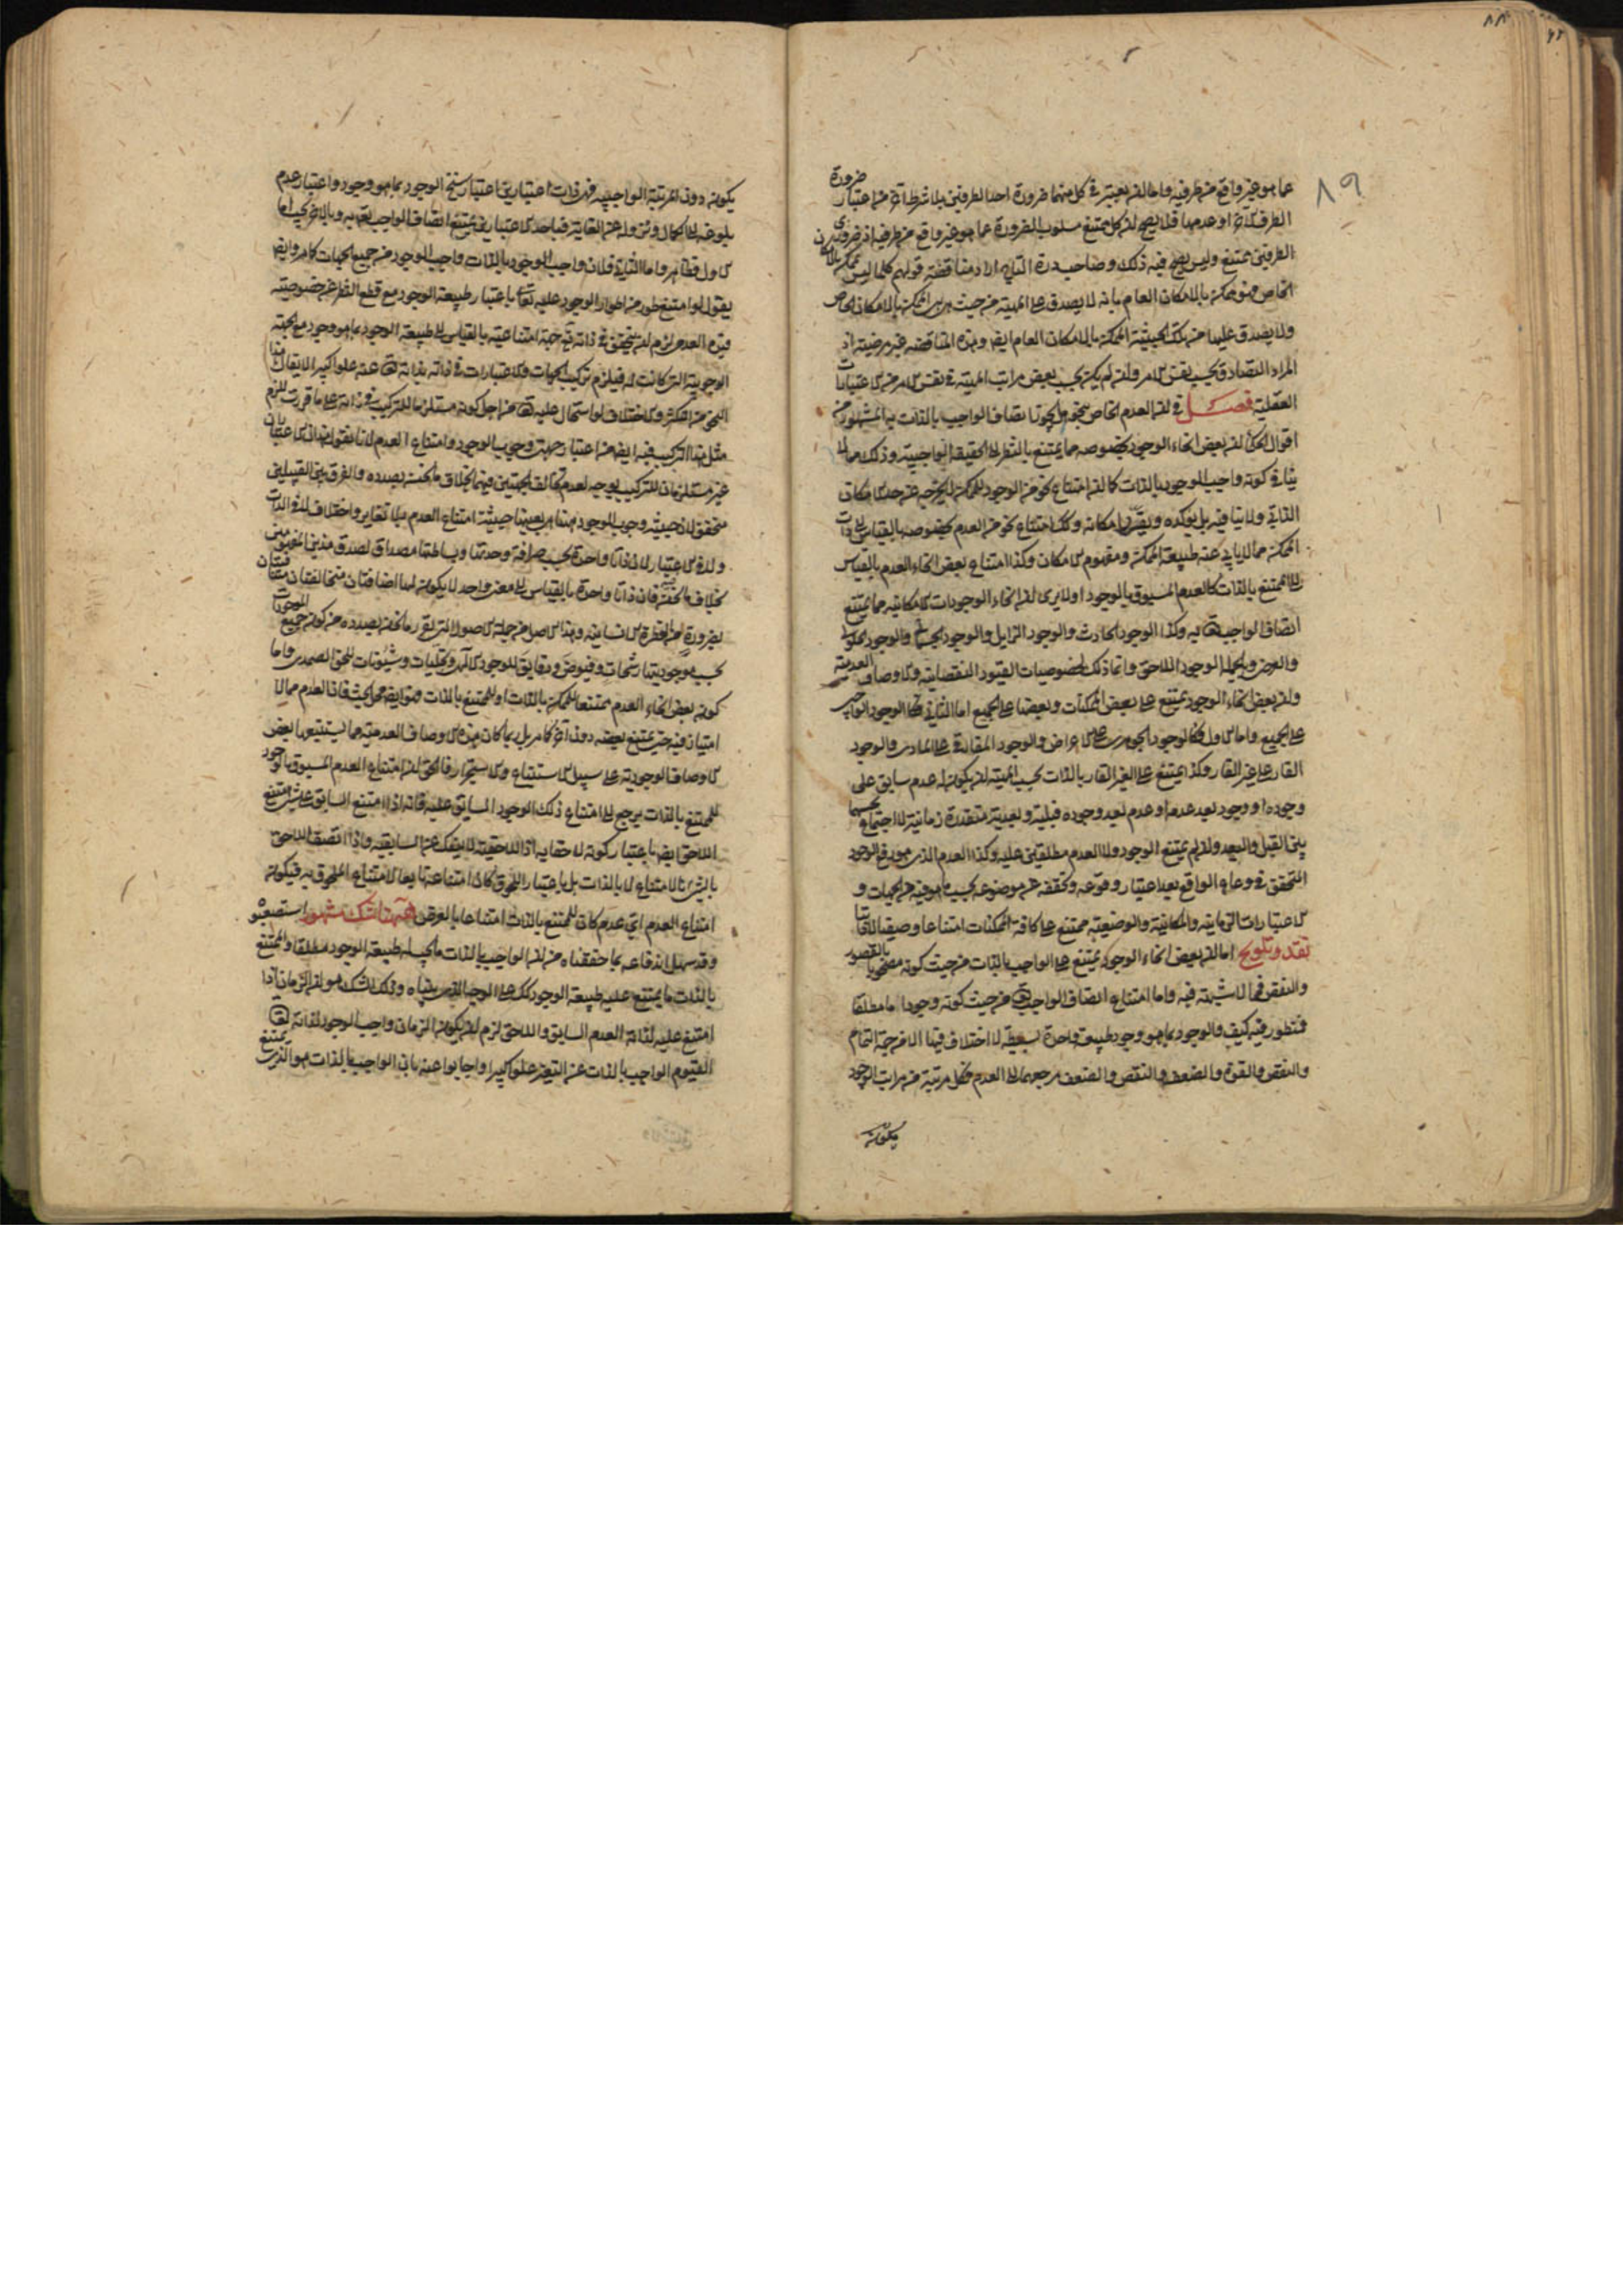 ٨٩
عما هو غير واقع من طرفيه واما ان يعتبر في كل منهما ضرورة احد الطرفين بلا شرط آخر من اعتبار ضرورة
الطرف الآخر او عدمها فلا يصح لان كل ممتنع مسلوب الضرورة عما هو غير واقع من طرفيه اذ ضروري
الطرفين ممتنع وليس يصح فيه ذلك وصاحب درة التاج اراد مناقضة قولهم كلما ليس بممكن بالامكان
الخاص فهو ممكن بالامكان العام بانه لا يصدق على المهية من حيث هي هي الممكن بالامكان الخاص
ولا يصدق عليها من تلك الحيثية الممكن بالامكان العام ايضا وهذه المناقضة غير مرضية اذ
المراد التصادق بحسب نفس الامر وان لم يكن بحسب بعض مراتب المهية في نفس الامر من الاعتبارات
العقلية فصل في ان العدم الخاص بنحو هل يجوز اتصاف الواجب بالذات به المشهور من
اقوال الحكماء ان بعض انحاء الوجود بخصوصه مما يمتنع بالنظر الى الحقيقة الواجبية وذلك مما لا
ينافي كونه واجب الوجود بالذات كما ان امتناع نحو من الوجود للممكن لا يخرجه عن حد الامكان
الذاتي ولا ينافيه بل يؤكده ويقرر امكانه وكذلك امتناع نحو من العدم بخصوصه بالقياس الى ذات
الممكن مما لا يابى عنه طبيعة الممكن ومفهوم الامكان وكذا امتناع بعض انحاء العدم بالقياس
الى الممتنع بالذات كالعدم المسبوق بالوجود اولا يرى ان انحاء الوجودات الامكانية مما يمتنع
اتصاف الواجب تعالى به وكذا الوجود الحادث والوجود الزايل والوجود الجسماني والوجود الحلولي
والعرض وبالجملة الوجود اللاحق وانما ذلك لخصوصيات القيود النقصانية والاوصاف العدمية
وان بعض انحاء الوجود يمتنع على بعض الممكنات وبعضها على الجميع اما الثاني فكالوجود الواجبي
على الجميع واما الاول فكالوجود الجوهري على الاعراض والوجود المفارقي على المادي والوجود
القار على غير القار وكذا يمتنع على الغير القار بالذات بحسب المهية ان يكون له عدم سابق على
وجوده او وجود بعد عدمه او عدم بعد وجوده قبلية وبعدية متقدرة زمانية لا اجتماع بحسبها
بين القبل والبعد وان لم يمتنع الوجود ولا العدم مطلقين عليه وكذا العدم الذي هو رفع الوجود
المتحقق في وعاء الواقع بعد اعتبار وقوعه وتحققه عن موضوعه بحسب ما هو فيه من الجهات و
الاعتبارات الزمانية والمكانية والوضعية ممتنع على كافة الممكنات امتناعا وصفيا لا ذاتيا
نقد وتلويح اما ان بعض انحاء الوجود يمتنع على الواجب بالذات من حيث كونه مصحوبا بالقصور
والنقص فمما لا شبهة فيه واما امتناع اتصاف الواجب تعالى من حيث كونه وجودا ما مطلقا
فمنظور فيه كيف والوجود بما هو وجود طبيعة واحدة بسيطة لا اختلاف فيها الا من جهة التمام
والنقص والقوة والضعف والنقص والضعف مرجعهما الى العدم فكل مرتبة من مراتب الوجود
يكون
يكون دون المرتبة الواجبية فهي ذات اعتبارين اعتبار سنخ الوجود بما هو وجود واعتبار عدم
بلوغه الى الكمال ونزوله عن الغاية فباحد الاعتبارين يمتنع اتصاف الواجب تعالى به وبالآخر يجب اما
الاول فظاهر واما الثاني فلان واجب الوجود بالذات واجب الوجود من جميع الحيثيات كما مر وايضا
يقول لو امتنع طور من اطوار الوجود عليه تعالى باعتبار طبيعة الوجود مع قطع النظر عن خصوصية
قيده العدمي لزم ان يتحقق في ذاته تعالى جهة امتناعية بالقياس الى طبيعة الوجود بما هو وجود مع الجهة
الوجوبية التي كانت له فيلزم تركيب الجهات والاعتبارات في ذاته بذاته تعالى عنه علوا كبيرا لا يقال هذا
النحو من التكثر والاختلاف لو استحال عليه تعالى من اجل كونه مستلزما للتركيب في ذاته على ما قررت للزم
مثل هذا التركيب فيه ايضا من اعتبار جهتي وجوب الوجود وامتناع العدم لانا نقول هذان الاعتباران
غير مستلزمان للتركيب بوجه لعدم تخالف الجهتين فيهما بخلاف ما نحن بصدده والفرق بين القبيلين
متحقق لان حيثية وجوب الوجود هناك هي بعينها حيثية امتناع العدم بلا تغاير واختلاف لا في الذات
ولا في الاعتبار لان ذاتا واحدة بحسب صرافة وحدتها وبساطتها مصداق لصدق هذين المعنيين
بخلاف ما نحن فيه فان ذاتا واحدة بالقياس الى معنى واحد لا يكون لها اضافتان متخالفتان متنافيتان
بضرورة من الفطرة الانسانية وهذا الاصل من جملة الاصول التي تقرر ما نحن بصدده من كون جميع الموجودات
بحسب موجوديتها رشحات وفيوض ودقايق للوجود الالهي وتجليات وشئونات للحق الصمدي واما
كون بعض انحاء العدم ممتنعا للممكن بالذات او للممتنع بالذات فهو ايضا محل بحث فان العدم مما لا
امتياز فيه حتى يمتنع بعضه دون آخر كما مر بل ربما كان هذه الاوصاف العدمية مما يستتبعها بعض
الاوصاف الوجودية على سبيل الاستتباع والاستجرار فالحق ان امتناع العدم المسبوق بالوجود
للممتنع بالذات يرجع الى امتناع ذلك الوجود السابق عليه فانه اذا امتنع السابق على شيء امتنع
اللاحق ايضا باعتبار كونه لاحقا به اذ اللاحقية لا ينفك عن السابقية واذا اتصف اللاحق
بالشيء بالامتناع لا بالذات بل باعتبار اللحوق كان امتناعه تابعا لامتناع الملحوق به فيكون
امتناع العدم اي عدم كان للممتنع بالذات امتناعا بالعرض وههنا شك مشهور استصعبوه
وقد سهل اندفاعه بما حققناه من ان الواجب بالذات ما يجب له طبيعة الوجود مطلقا والممتنع
بالذات ما يمتنع عليه طبيعة الوجود كذلك على الوجه الذي بيناه وذلك الشك هو ان الزمان اذا
امتنع عليه لذاته العدم السابق واللاحق لزم ان يكون الزمان واجب الوجود لذاته تعالى
القيوم الواجب بالذات عن التغير علوا كبيرا واجابوا عنه بان الواجب بالذات هو الذي يمتنع